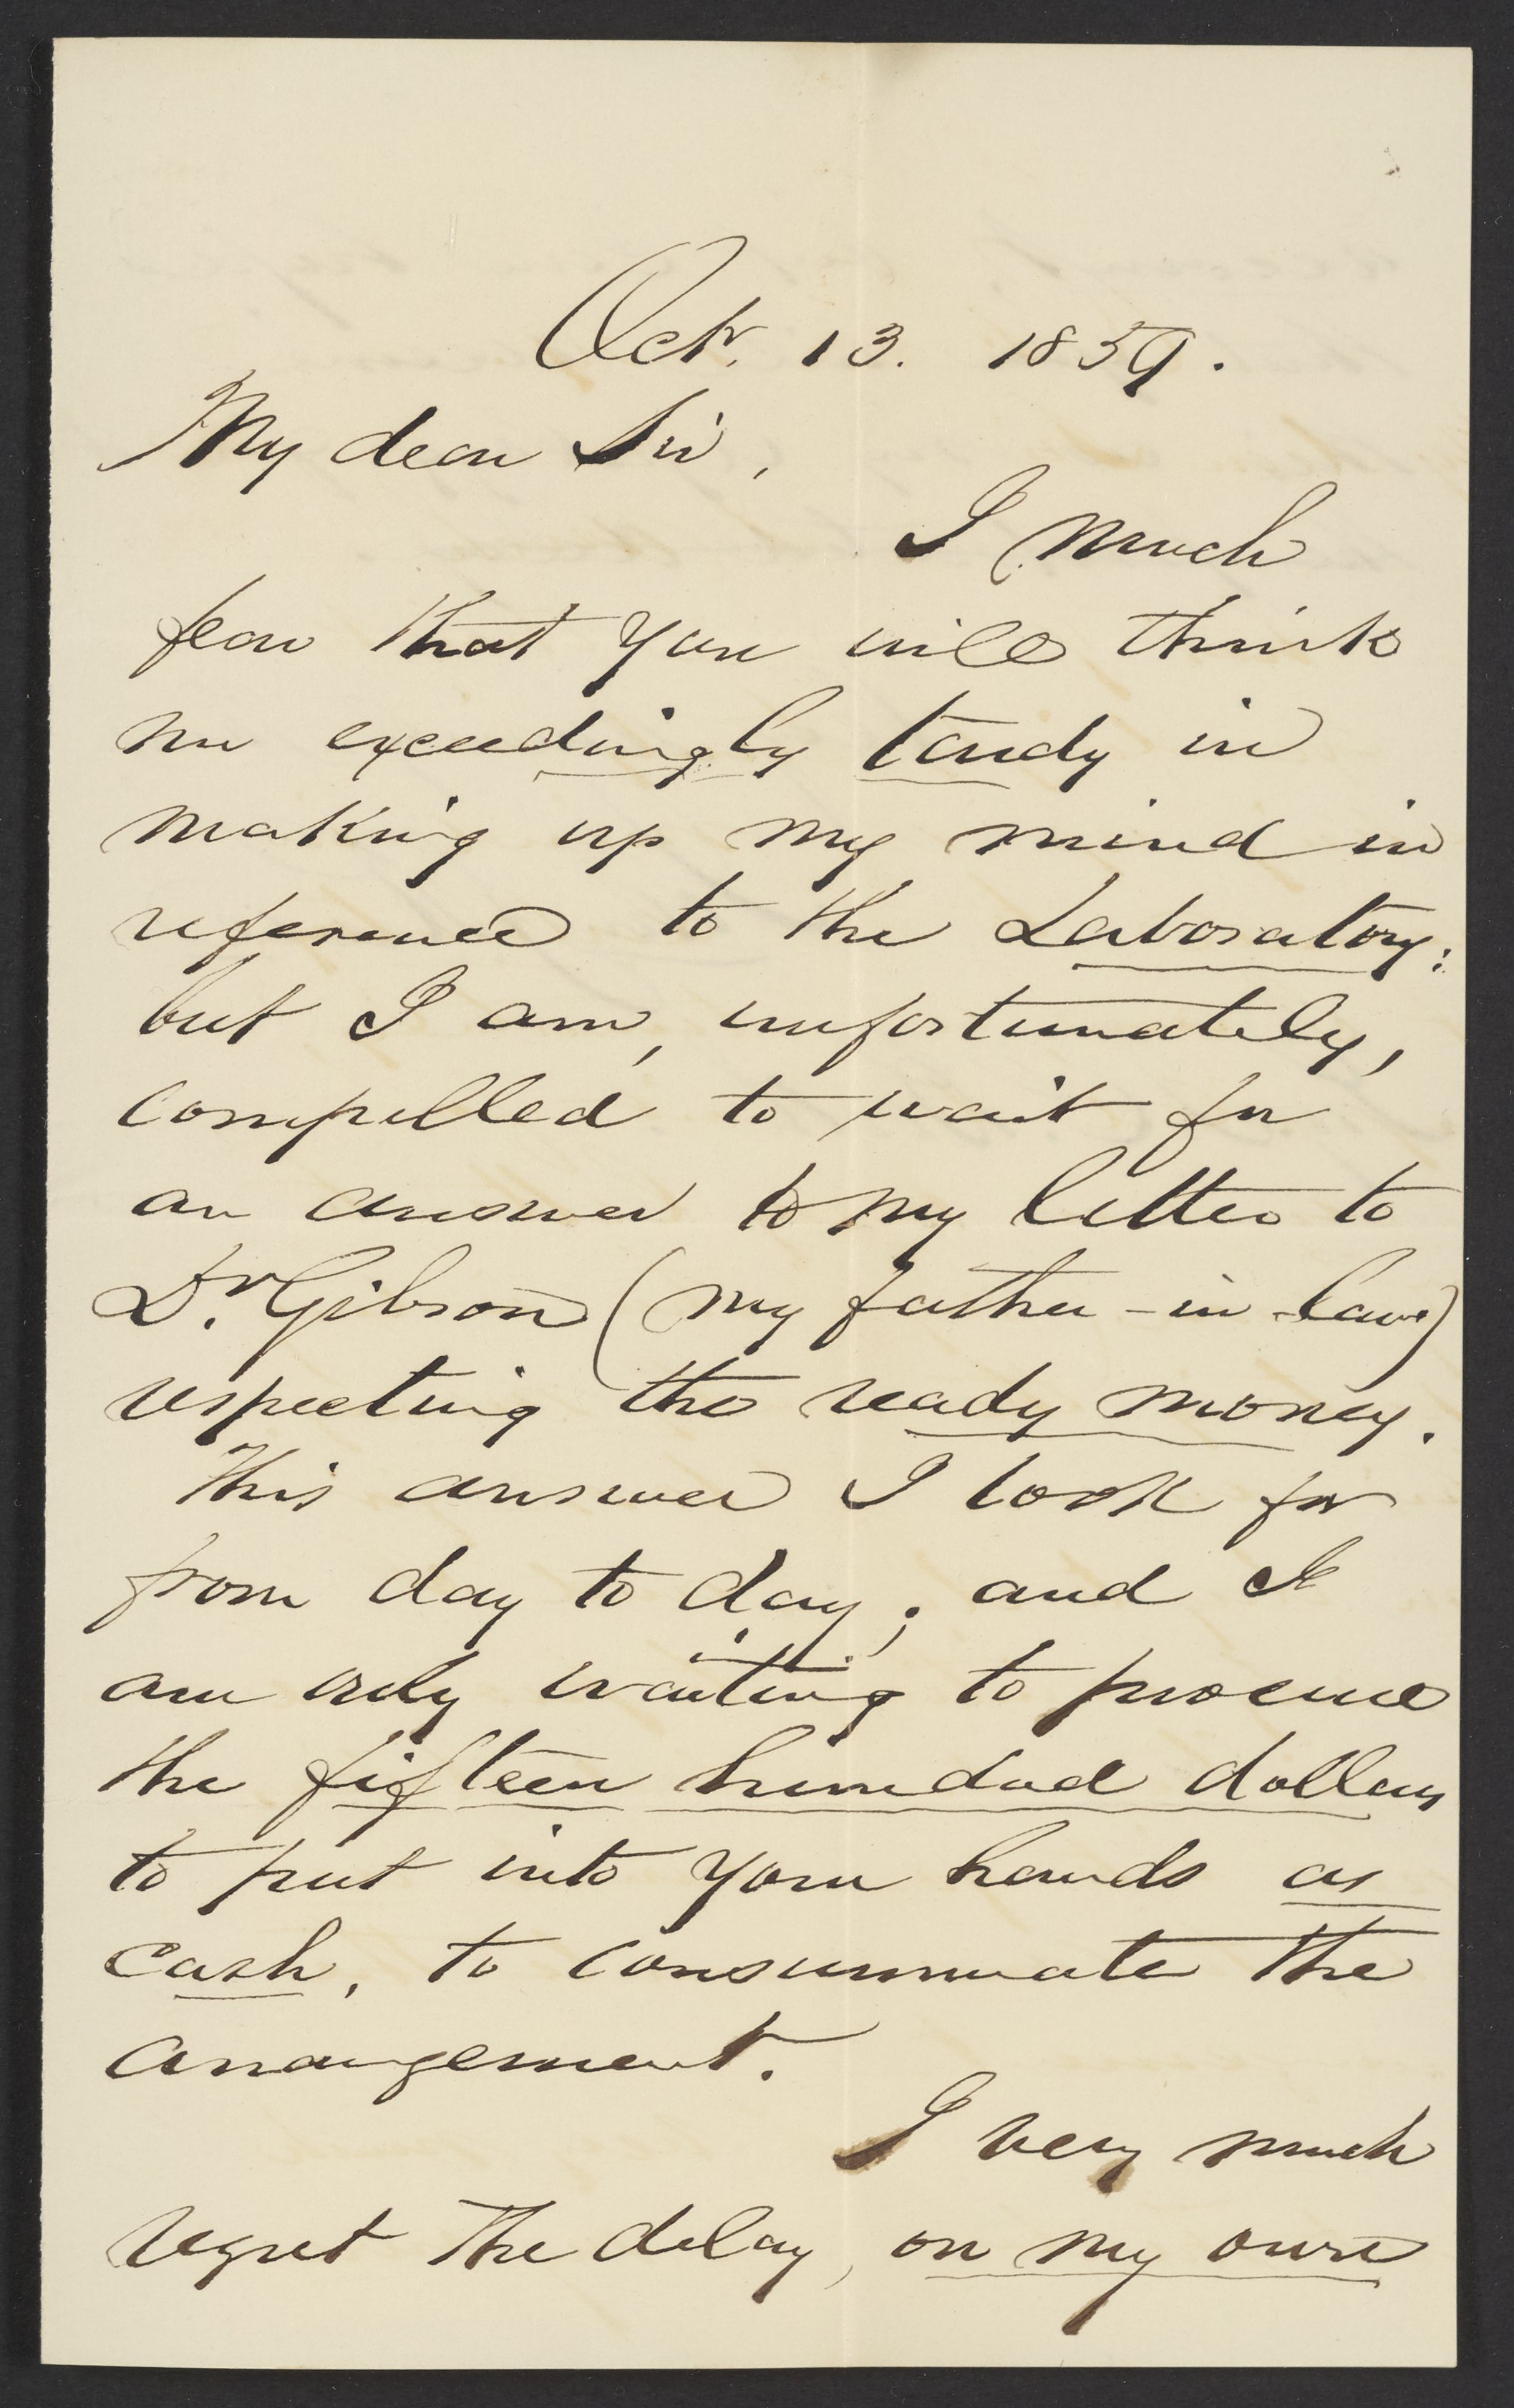 Octr. 13. 1859.
My dear Sir,
I much
fear that you will think
me exceedingly tardy in
making up my mind in
reference to the Laboratory:
but I am, unfortunately,
compelled to wait for
an answer to my letter to
Dr. Gibson (my father-in-law)
respecting the ready money.
This answer I look for
from day to day; and I
am only waiting to procure
the fifteen hundred dollars
to put into your hands as
cash, to consummate the
arrangement.
I very much
regret the delay, on my own